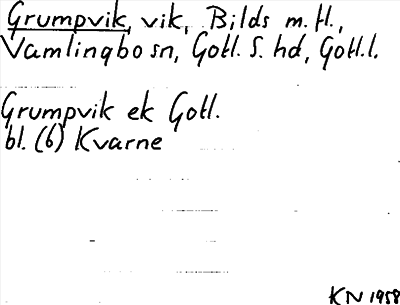 Grumpvik, vik, Bilds m.fl.,
Vamlingbo sn, Gotl. S. hd, Gotl.l.
Grumpvik ek Gotl.
bl. (6) Kvarne
KN 1958